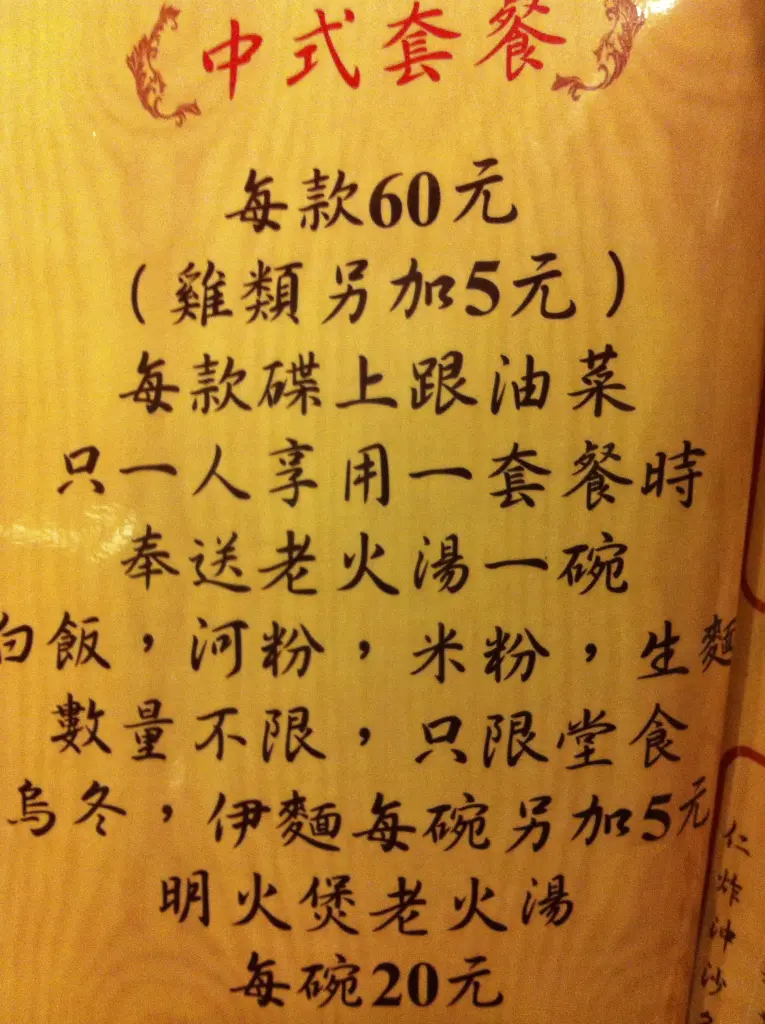 中式套餐
每款60元
（雞類另加5元）
每款碟上跟油菜
只一人享用一套餐時
奉送老火湯一碗
白飯，河粉，米粉，生麵
數量不限，只限堂食
烏冬，伊麵每碗另加5元
明火煲老火湯
每碗20元
仁
炸
沖
沙